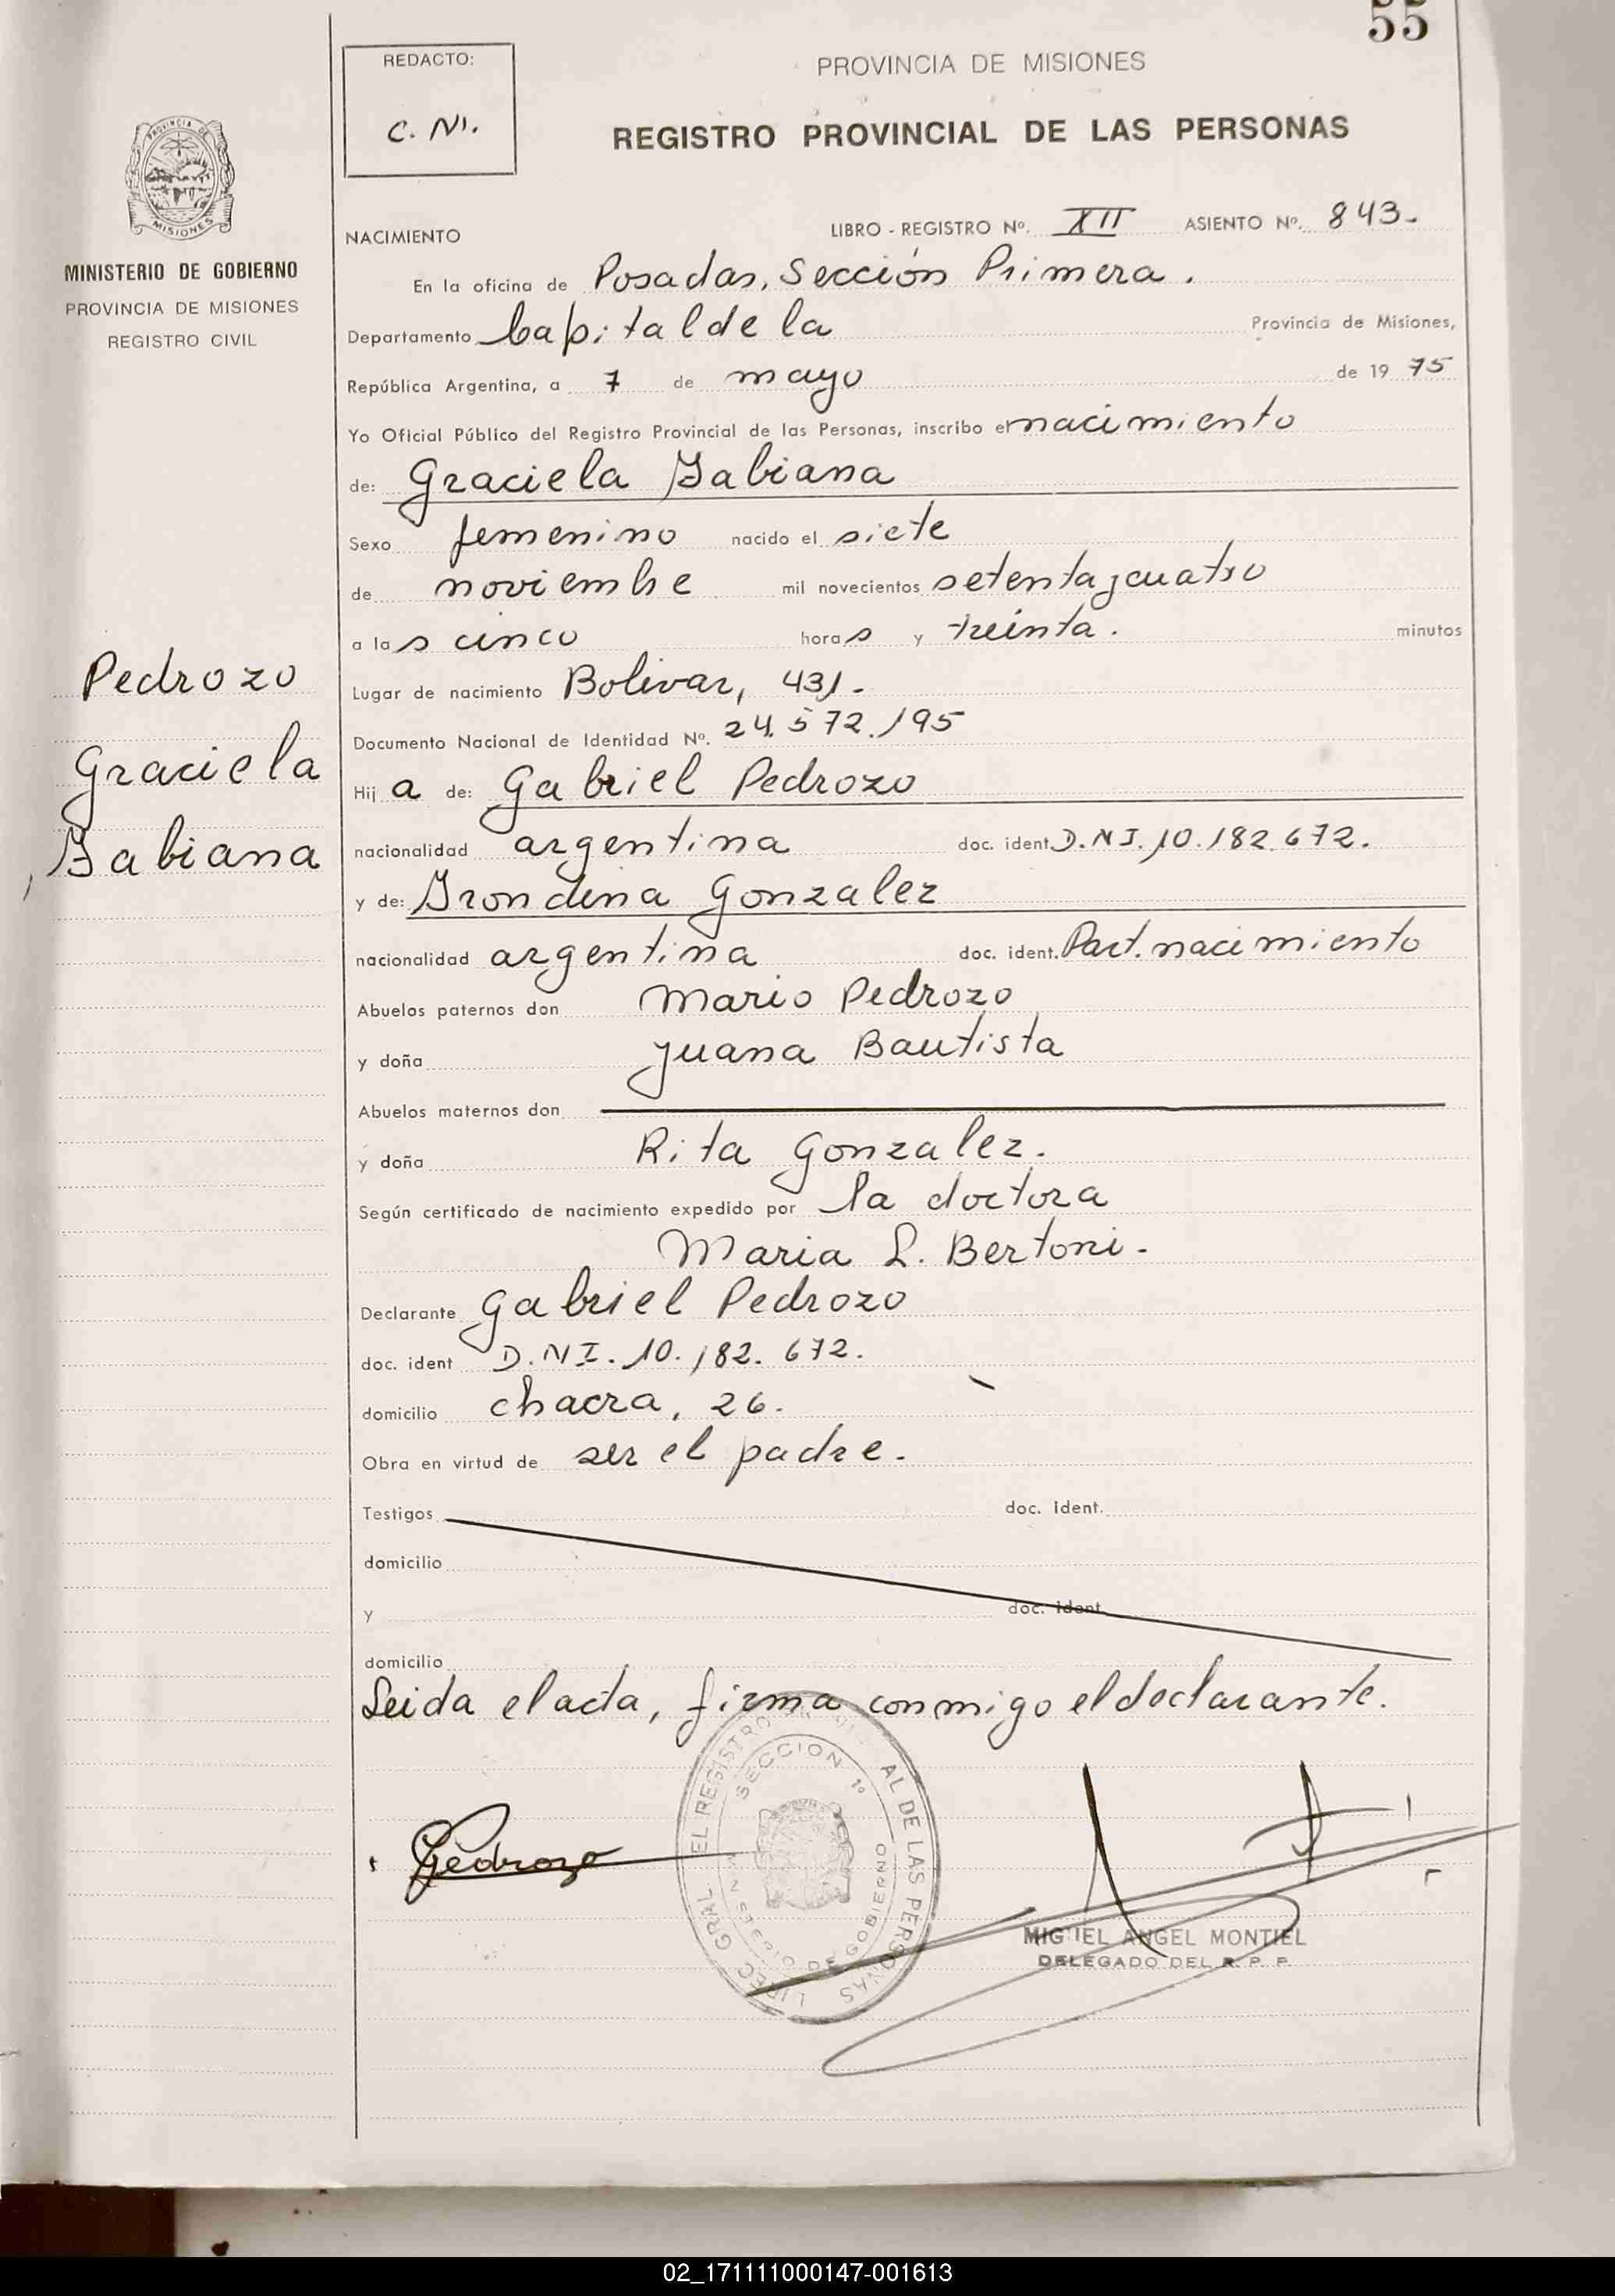 55
REDACTO:
C. M.
PROVINCIA DE MISIONES
REGISTRO PROVINCIAL DE LAS PERSONAS
PROVINCIA DE
MISIONES
MINISTERIO DE GOBIERNO
PROVINCIA DE MISIONES
REGISTRO CIVIL
NACIMIENTO LIBRO - REGISTRO Nº. XII ASIENTO Nº. 843.
En la oficina de Posadas, Sección Primera.
Departamento Capital de la Provincia de Misiones,
República Argentina, a 7 de mayo de 19 75
Yo Oficial Público del Registro Provincial de las Personas, inscribo el nacimiento
de: Graciela Fabiana
Sexo femenino nacido el siete
de noviembre mil novecientos setenta y cuatro
a las cinco horas y treinta. minutos
Lugar de nacimiento Bolivar, 431.
Documento Nacional de Identidad Nº. 24.572.195
Pedrozo
Graciela
Fabiana
Hija de: Gabriel Pedrozo
nacionalidad argentina doc. ident. D.N.I. 10.182.672.
y de: Irondina Gonzalez
nacionalidad argentina doc. ident. Part. nacimiento
Abuelos paternos don Mario Pedrozo
y doña Juana Bautista
Abuelos maternos don
y doña Rita Gonzalez.
Según certificado de nacimiento expedido por la doctora
Maria L. Bertoni.
Declarante Gabriel Pedrozo
doc. ident D.N.I. 10.182.672.
domicilio chacra, 26.
Obra en virtud de ser el padre.
Testigos doc. ident.
domicilio
y doc. ident.
domicilio
Leida el acta, firma conmigo el declarante.
SECCION 1º
DE LAS PERSONAS
DE GOBIERNO
Pedrozo
MIGUEL ANGEL MONTIEL
DELEGADO DEL R. P. P.
02_171111000147-001613